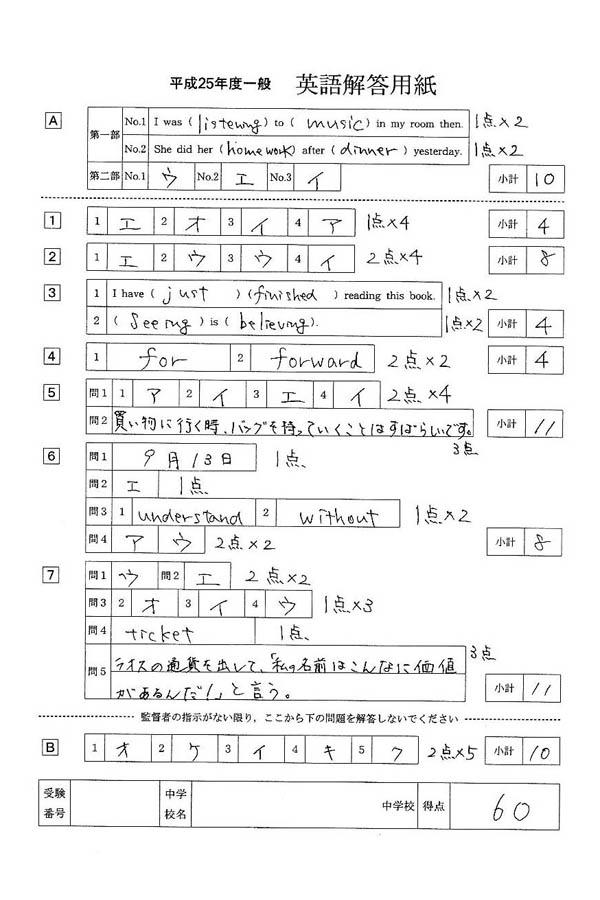 平成25年度一般 英語解答用紙
A 第一部 No.1 I was ( listening ) to ( music ) in my room then. 1点×2
No.2 She did her ( homework ) after ( dinner ) yesterday. 1点×2
第二部 No.1 ウ No.2 エ No.3 イ 小計 10
1 1 エ 2 オ 3 イ 4 ア 1点×4 小計 4
2 1 エ 2 ウ 3 ウ 4 イ 2点×4 小計 8
3 1 I have ( just ) ( finished ) reading this book. 1点×2
2 ( Seeing ) is ( believing ). 1点×2 小計 4
4 1 for 2 forward 2点×2 小計 4
5 問1 1 ア 2 イ 3 エ 4 イ 2点×4
問2 買い物に行く時、バッグを持っていくことはすばらしいです。 小計 11
3点
6 問1 9月13日 1点、
問2 エ 1点、
問3 1 understand 2 without 1点×2
問4 ア ウ 2点×2 小計 8
7 問1 ウ 問2 エ 2点×2
問3 2 オ 3 イ 4 ウ 1点×3
問4 ticket 1点、
問5 ラオスの通貨を出して、「私の名前はこんなに価値 3点
があるんだ!」と言う。 小計 11
監督者の指示がない限り，ここから下の問題を解答しないでください
B 1 オ 2 ケ 3 イ 4 キ 5 ク 2点×5 小計 10
受験番号 中学校名 中学校 得点 60